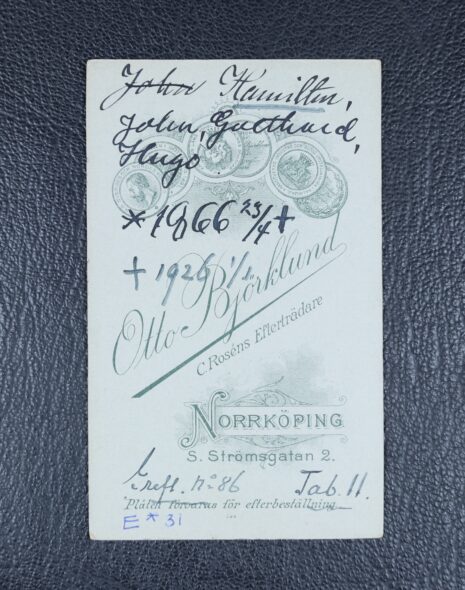 John Hamilton,
John, Gotthard,
Hugo.
*1866 23/4 +
+ 1926 1/1.
Otto Björklund
C. Roséns Efterträdare
NORRKÖPING
S. Strömsgatan 2.
Grefl. No 86 Tab. 11.
Plåten förvaras för efterbeställning
E * 31